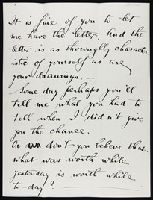 It is fine of you to let
me have the letter. And the
letter is so thoroughly charac-
istic of yourself as are
your drawings.
Some day perhaps you'll
tell me what you had to
tell when I didn't give
you the chance.
Or don't you believe that
what was worth while
yesterday is worth while
to day?